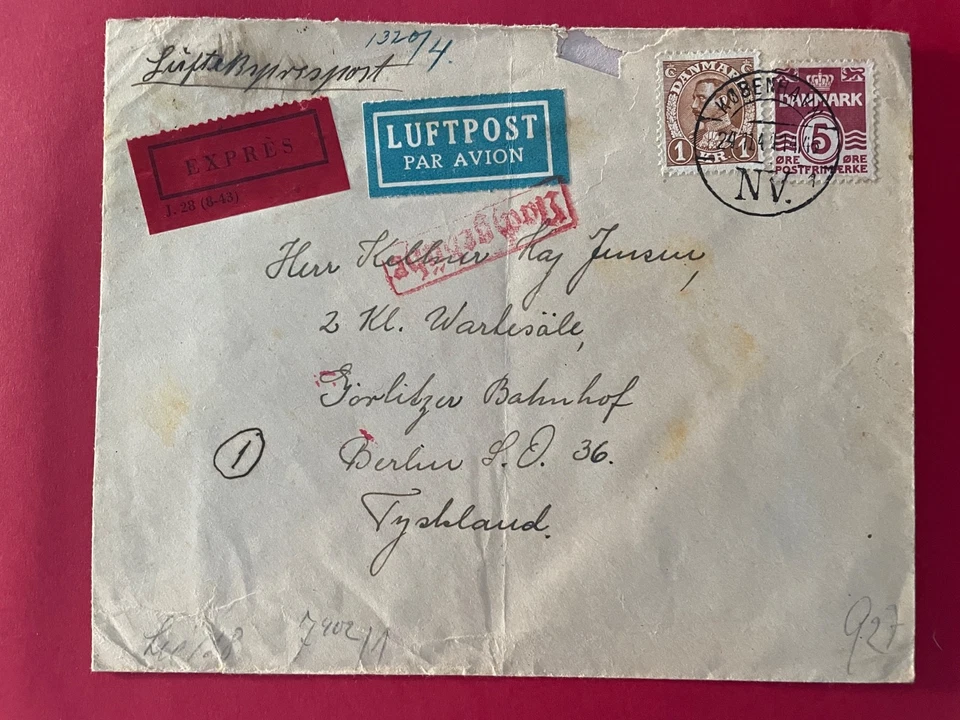 1320/4.
Luftekspresspost
EXPRÈS
J. 28 (8-43)
LUFTPOST
PAR AVION
DANMARK
1 KR 1
DANMARK
5
ØRE ØRE
POSTFRIMÆRKE
KØBENHAVN
NV. 1
Nachgebühr
Herr Kellner Kaj Jensen,
2 Kl. Wartesäle,
Görlitzer Bahnhof
1
Berlin S. O. 36.
Tyskland.
927